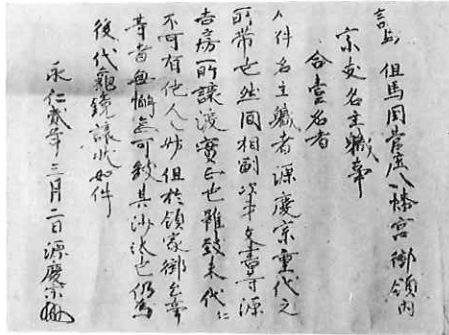 譲与 但馬国菅庄八幡宮御領内
宗支名主職事
合壹名者
右件名主職者源慶宗重代之
所帯也然間相副次第文書等源
吉房所譲渡實正也雖致末代仁
不可有他人妨但於領家御年貢
等者無懈怠可致其沙汰也仍為
後代龜鏡譲状如件
永仁貳年三月二日源慶宗